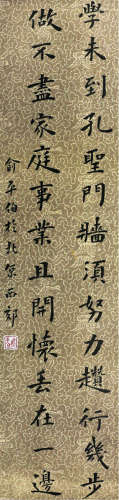 學未到孔聖門牆須努力趲行幾步
做不盡家庭事業且開懷丟在一邊
俞平伯於北京西郊